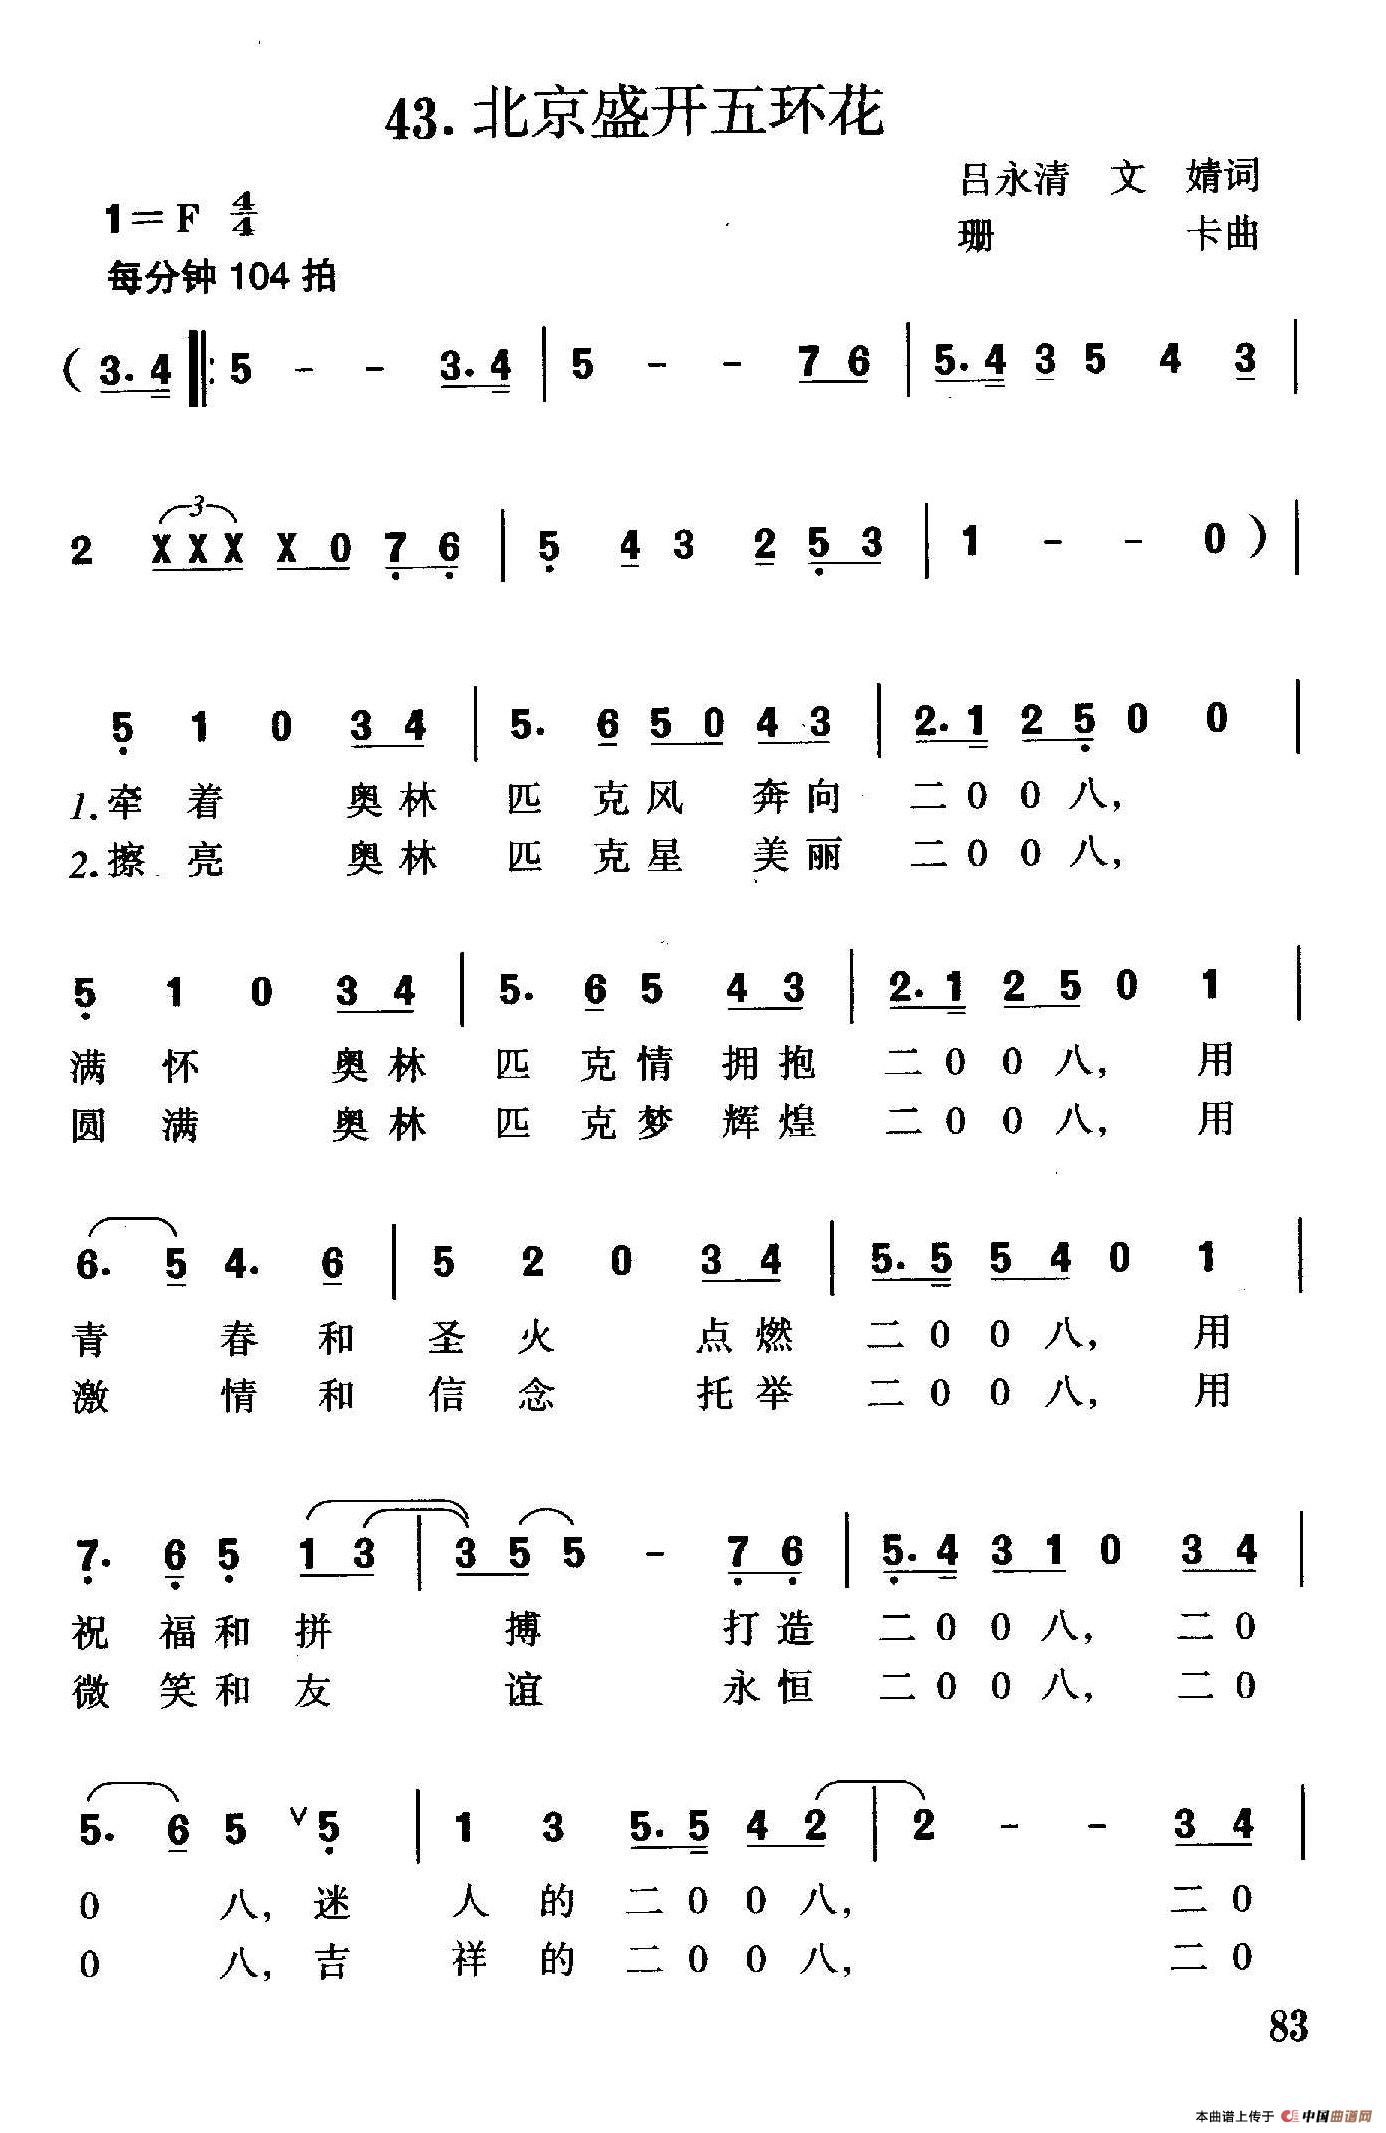 43. 北京盛开五环花
吕永清 文 婧词
珊 卡曲
1=F 4/4
每分钟 104 拍
( 3. 4 ‖: 5 - - 3. 4 | 5 - - 7 6 | 5. 4 3 5 4 3 |
2 X X X X 0 7 6 | 5 4 3 2 5 3 | 1 - - 0 ) |
3
5 1 0 3 4 | 5. 6 5 0 4 3 | 2. 1 2 5 0 0 |
1. 牵 着 奥 林 匹 克 风 奔 向 二 0 0 八,
2. 擦 亮 奥 林 匹 克 星 美 丽 二 0 0 八,
5 1 0 3 4 | 5. 6 5 4 3 | 2. 1 2 5 0 1 |
满 怀 奥 林 匹 克 情 拥 抱 二 0 0 八, 用
圆 满 奥 林 匹 克 梦 辉 煌 二 0 0 八, 用
6. 5 4. 6 | 5 2 0 3 4 | 5. 5 5 4 0 1 |
青 春 和 圣 火 点 燃 二 0 0 八, 用
激 情 和 信 念 托 举 二 0 0 八, 用
7. 6 5 1 3 | 3 5 5 - 7 6 | 5. 4 3 1 0 3 4 |
祝 福 和 拼 搏 打 造 二 0 0 八, 二 0
微 笑 和 友 谊 永 恒 二 0 0 八, 二 0
5. 6 5 ∨ 5 | 1 3 5. 5 4 2 | 2 - - 3 4 |
0 八, 迷 人 的 二 0 0 八, 二 0
0 八, 吉 祥 的 二 0 0 八, 二 0
83
本曲谱上传于 中国曲谱网